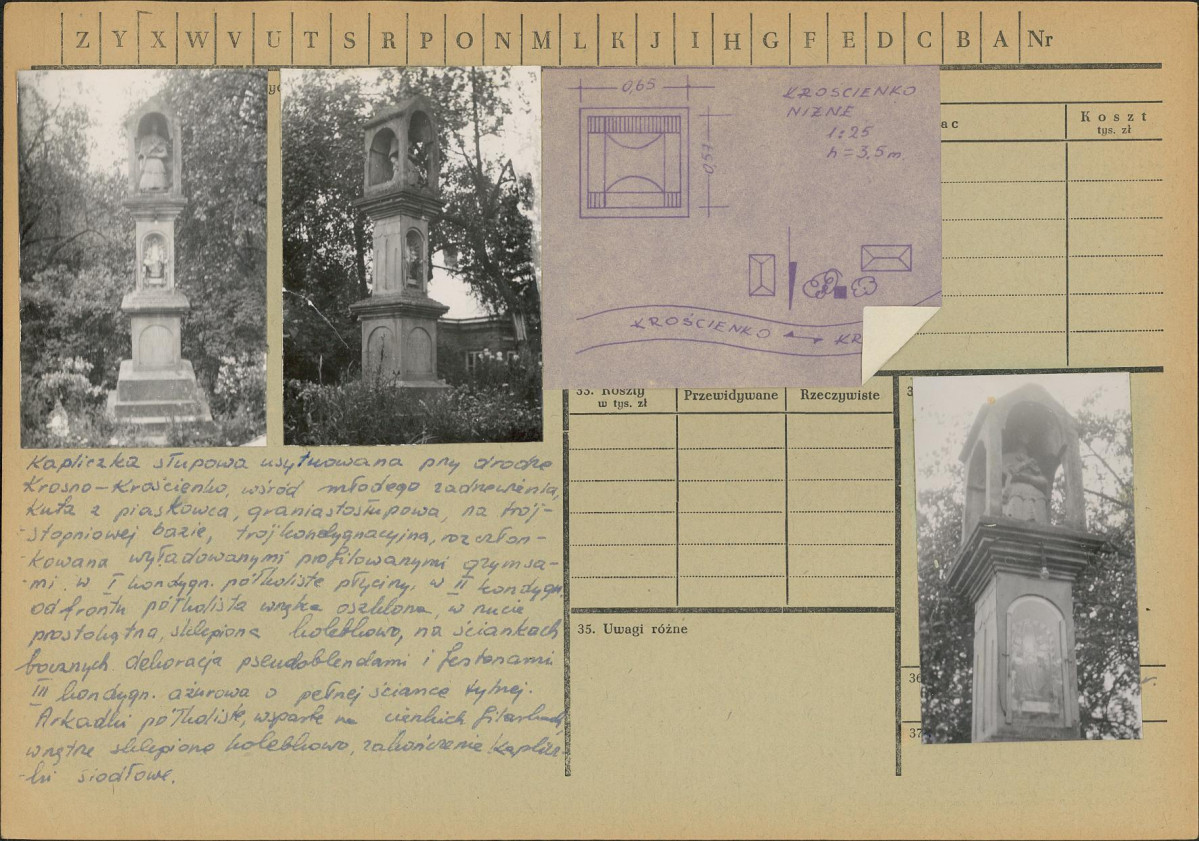 Z Y X W V U T S R P O N M L K J I H G F E D C B A Nr
0,65
0,57
KROŚCIENKO
NIŻNE
1:25
h = 3,5 m.
KROŚCIENKO
KR
ac
Koszt
tys. zł
33. Koszty
w tys. zł
Przewidywane
Rzeczywiste
35. Uwagi różne
36
37
Kapliczka słupowa usytuowana przy drodze
Krosno-Krościenko, wśród młodego zadrzewienia,
kuta z piaskowca, graniastosłupowa, na trój-
stopniowej bazie, trójkondygnacyjna, rozczłon-
kowana wyładowanymi profilowanymi gzymsa-
mi. w I kondygn. półkoliste płyciny, w II kondygn.
od frontu półkolista wnęka oszklona, w rzucie
prostokątna, sklepiona kolebkowo, na ściankach
bocznych dekoracja pseudoblendami i festonami
III kondygn. ażurowa o pełnej ściance tylnej.
Arkadki półkoliste, wsparte na cienkich filarkach,
wnętrze sklepione kolebkowo, zakończenie kaplicz-
ki siodłowe.